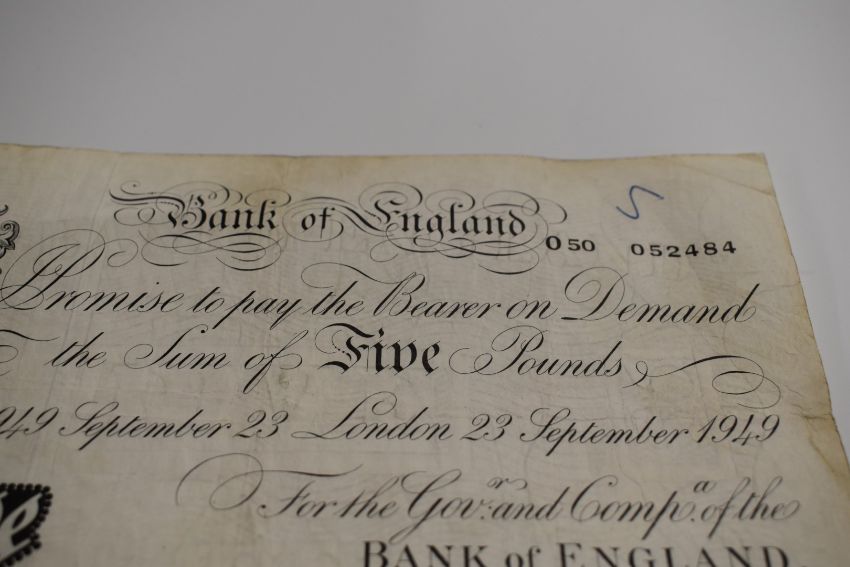 Bank of England O 50 052484
Promise to pay the Bearer on Demand
the Sum of Five Pounds
1949 September 23 London 23 September 1949
For the Gov.r and Comp.a of the
BANK of ENGLAND.